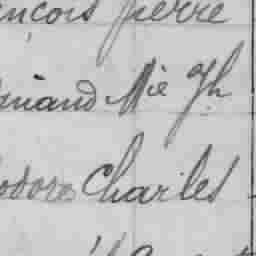 ençois pierre
inand Mie Jh
odore Charles